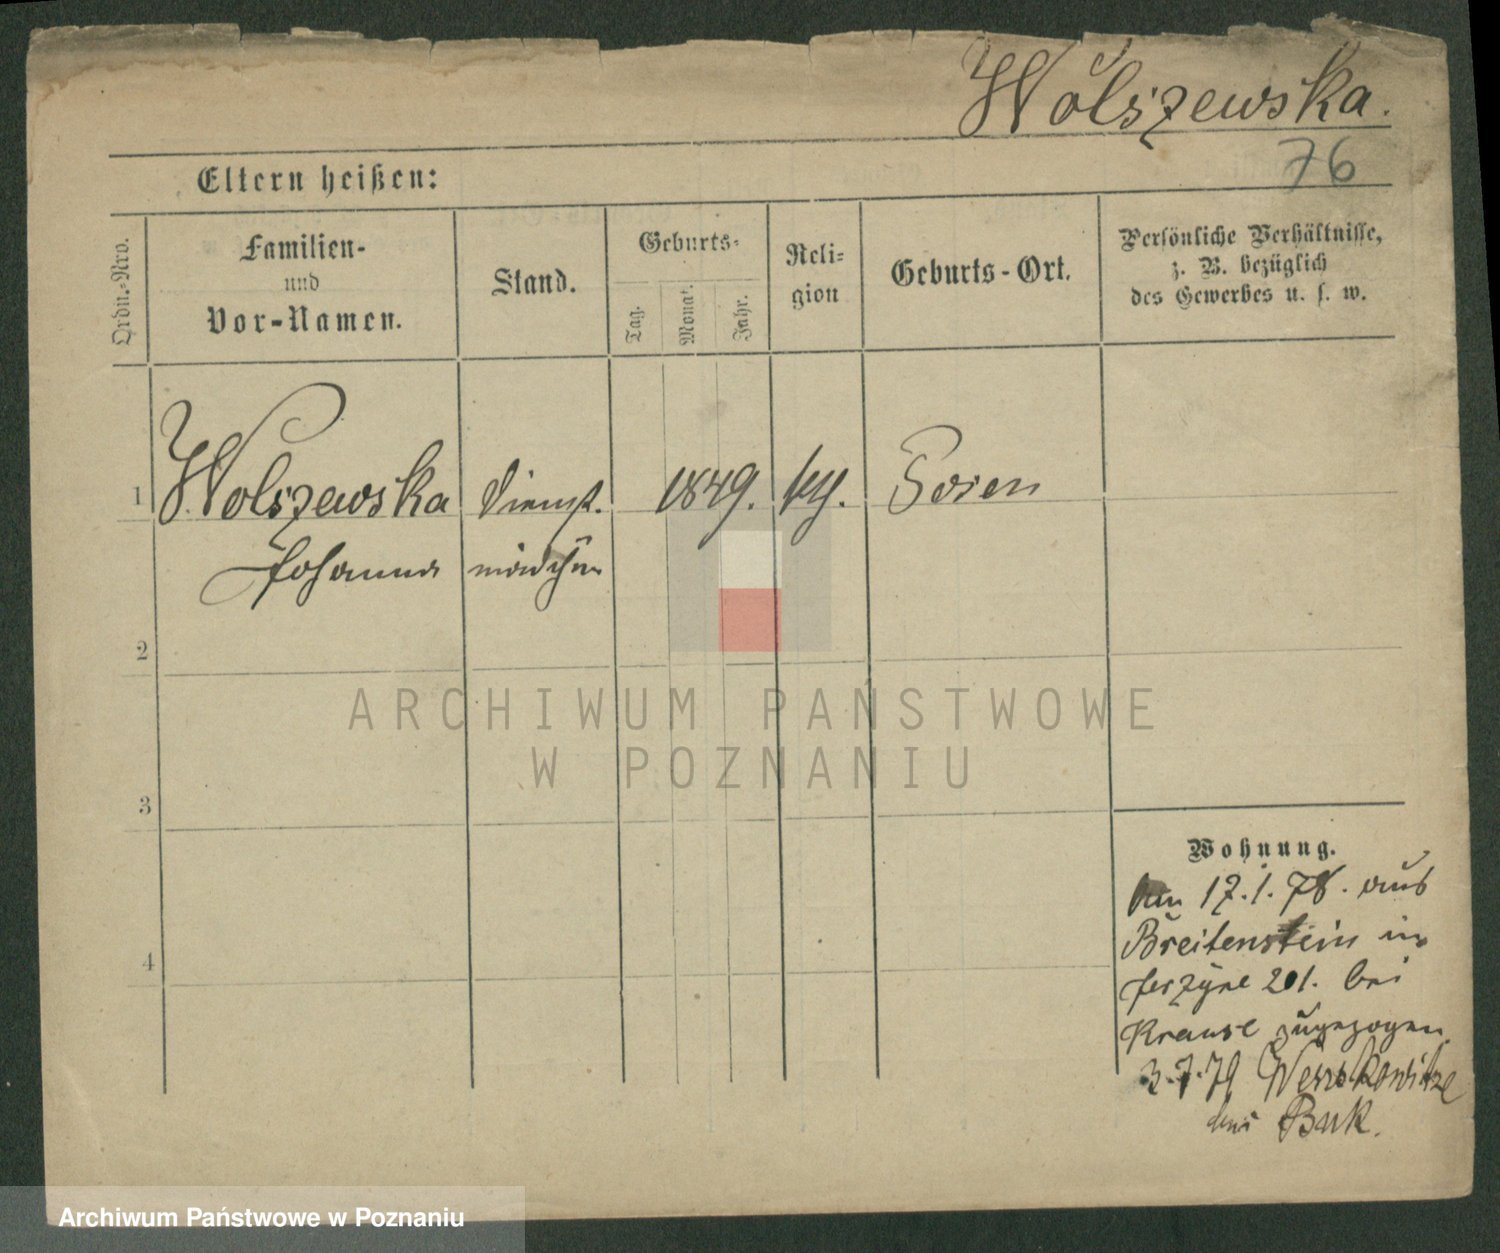 Wolszewska.
76
Eltern heißen:
Ordn.-Nro.
Familien-
und
Vor-Namen.
Stand.
Geburts-
Tag.
Monat.
Jahr.
Reli-
gion
Geburts-Ort.
Persönliche Verhältnisse,
z. B. bezüglich
des Gewerbes u. s. w.
1
Wolszewska
Johanna
Dienst-
mädchen
1849.
kth.
Posen
2
3
4
Wohnung.
Am 17.1.78. aus
Breitenstein in
Jerzyce 201. bei
Krause zugezogen
3.7.79
bei Buk.
ARCHIWUM PAŃSTWOWE
W POZNANIU
Archiwum Państwowe w Poznaniu